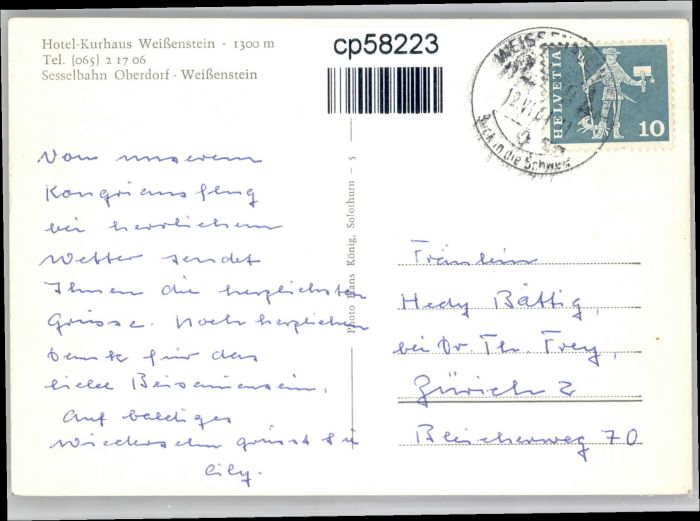 Hotel-Kurhaus Weißenstein - 1300 m
Tel. (065) 2 17 06
Sesselbahn Oberdorf - Weißenstein
cp58223
WEISSENSTEIN
Blick in die Schweiz
HELVETIA
10
Photo Hans König, Solothurn - 5
Von unserem
bei herrlichem
Wetter sendet
Ihnen die herzlichsten
Grüsse. Noch herzlichen
Dank für das
liebe Beisammensein.
Auf baldiges
Wiedersehn grüsst Sie
Cily.
Fräulein
Hedy Bättig,
bei Dr. Th. Frey,
Zürich 2
Bleicherweg 70